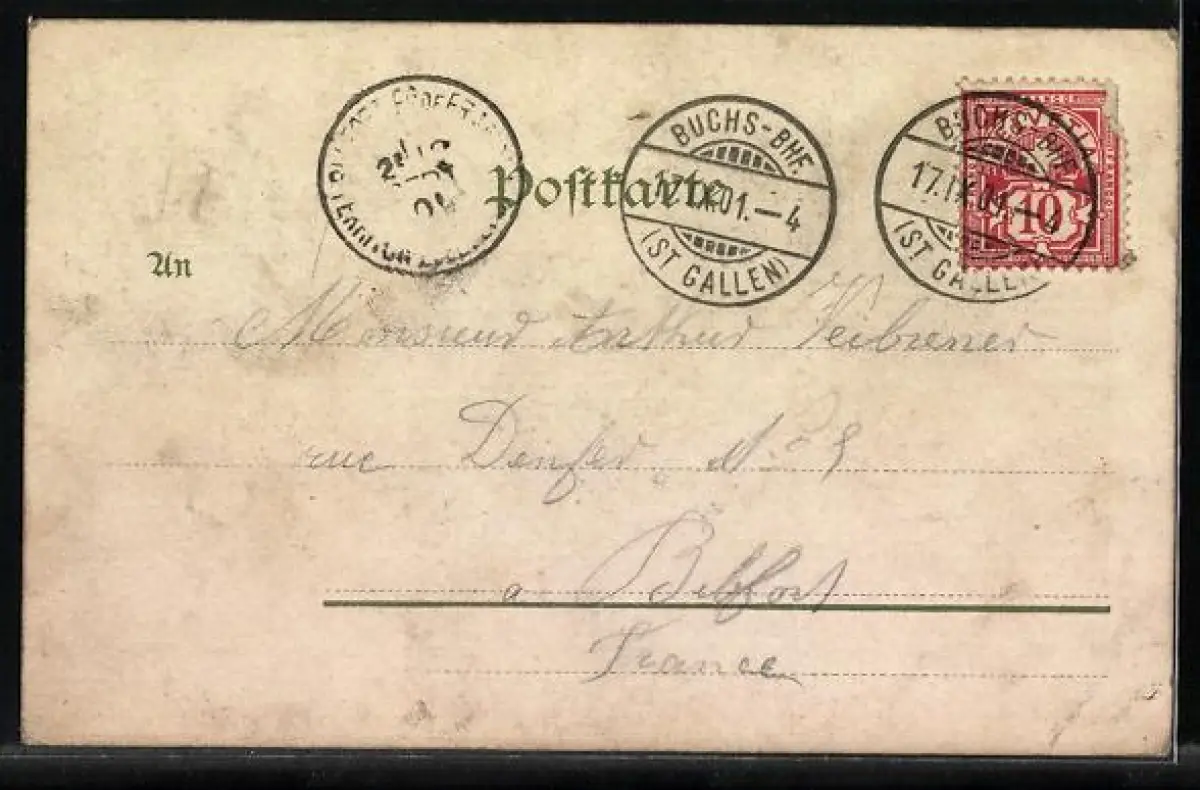 Postkarte
BUCHS-BHF.
17.IX.01.-4
(ST GALLEN)
BUCHS-BHF.
17.IX.01.-4
(ST GALLEN)
10
FRANCO
An
Monsieur Arthur
rue Denfer N°
a Belfort
France